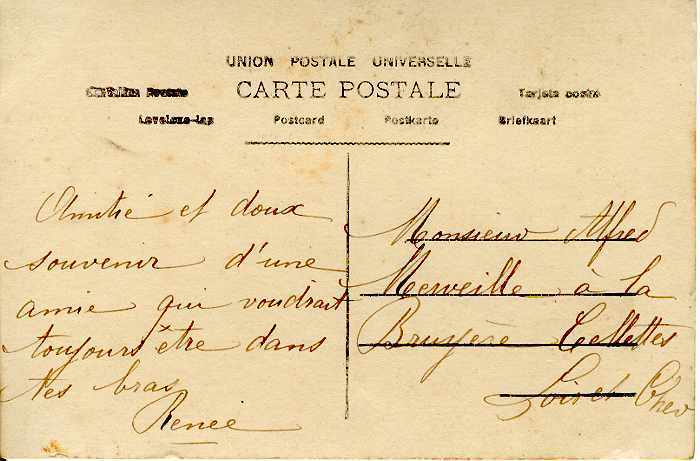 UNION POSTALE UNIVERSELLE
CARTE POSTALE
Tarjeta
Levelezo-lap Postcard Postkarte Briefkaart
Amitié et doux
souvenir d'une
amie qui voudrait
toujours être dans
tes bras
Renée
Monsieur Alfred
Merveille à la
Bruyère Cellettes
Loir et Cher